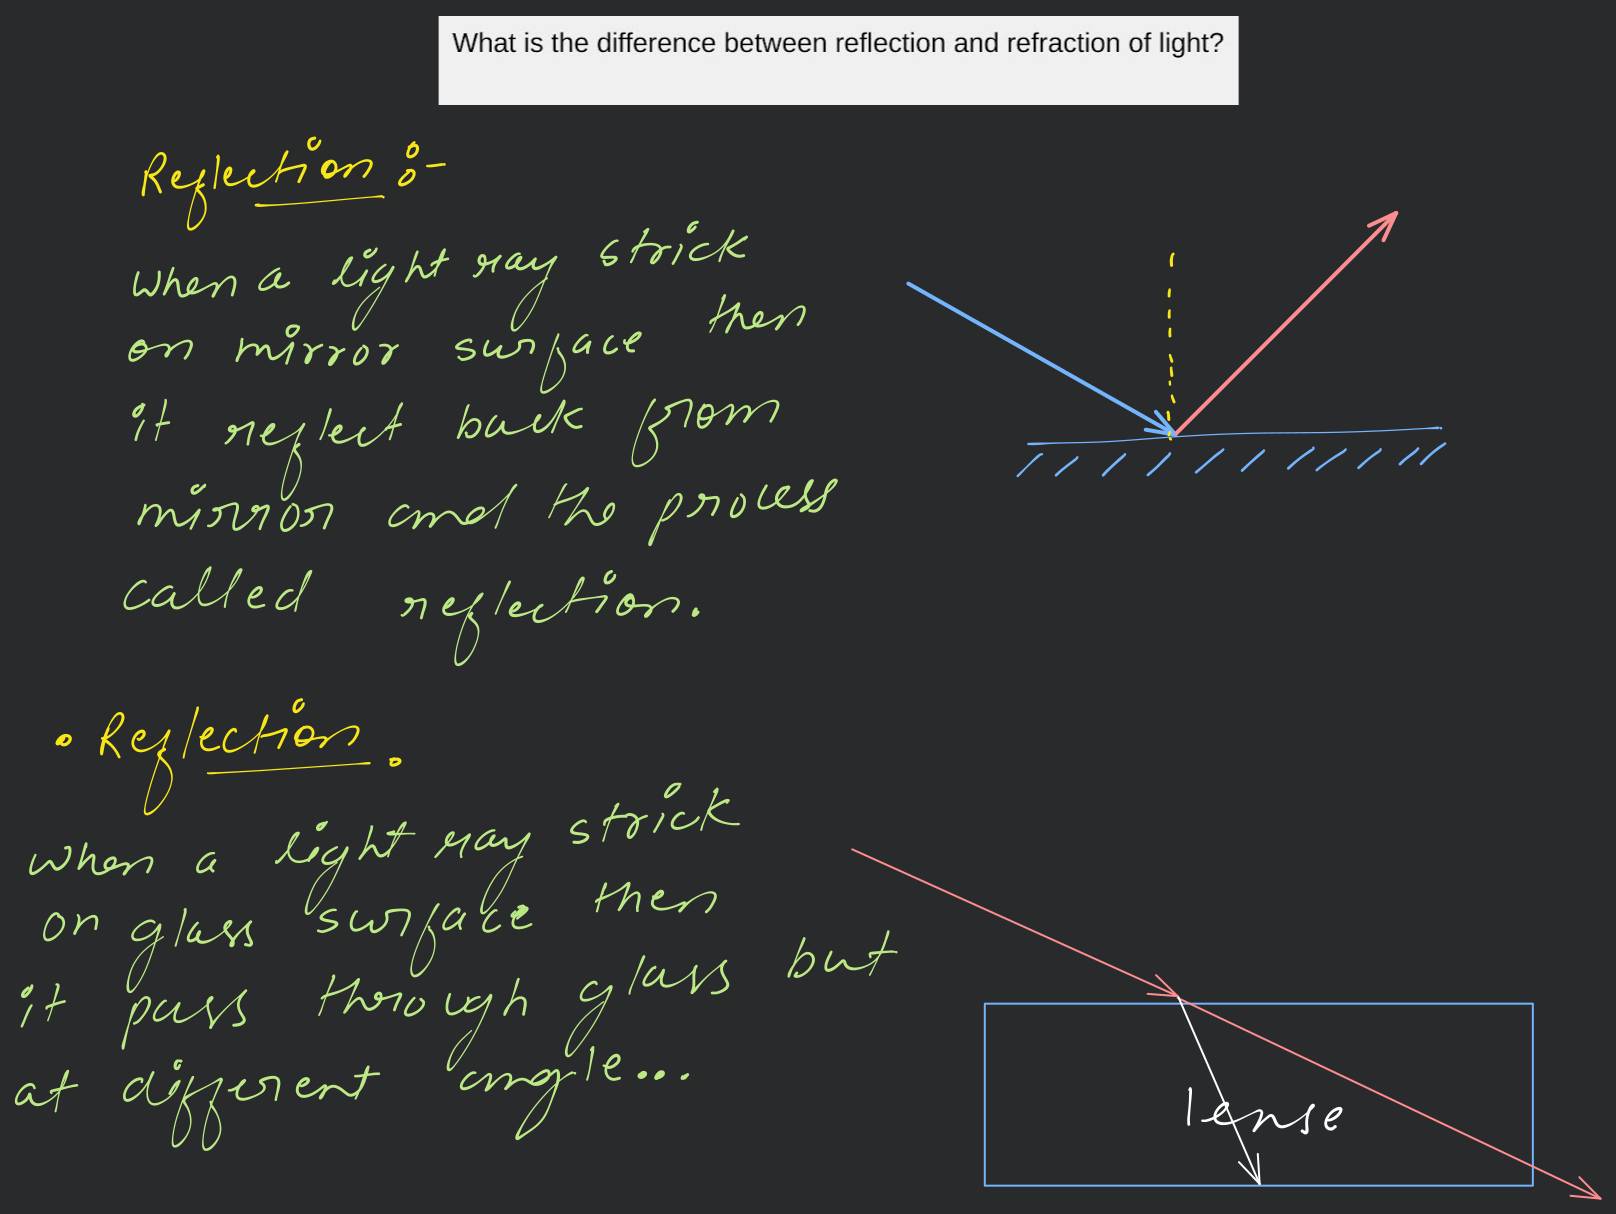 What is the difference between reflection and refraction of light?
Reflection :-
when a light ray strick
on mirror surface then
it reflect back from
mirror and the process
called reflection.
• Reflection.
when a light ray strick
on glass surface then
it pass through glass but
at different angle...
lense